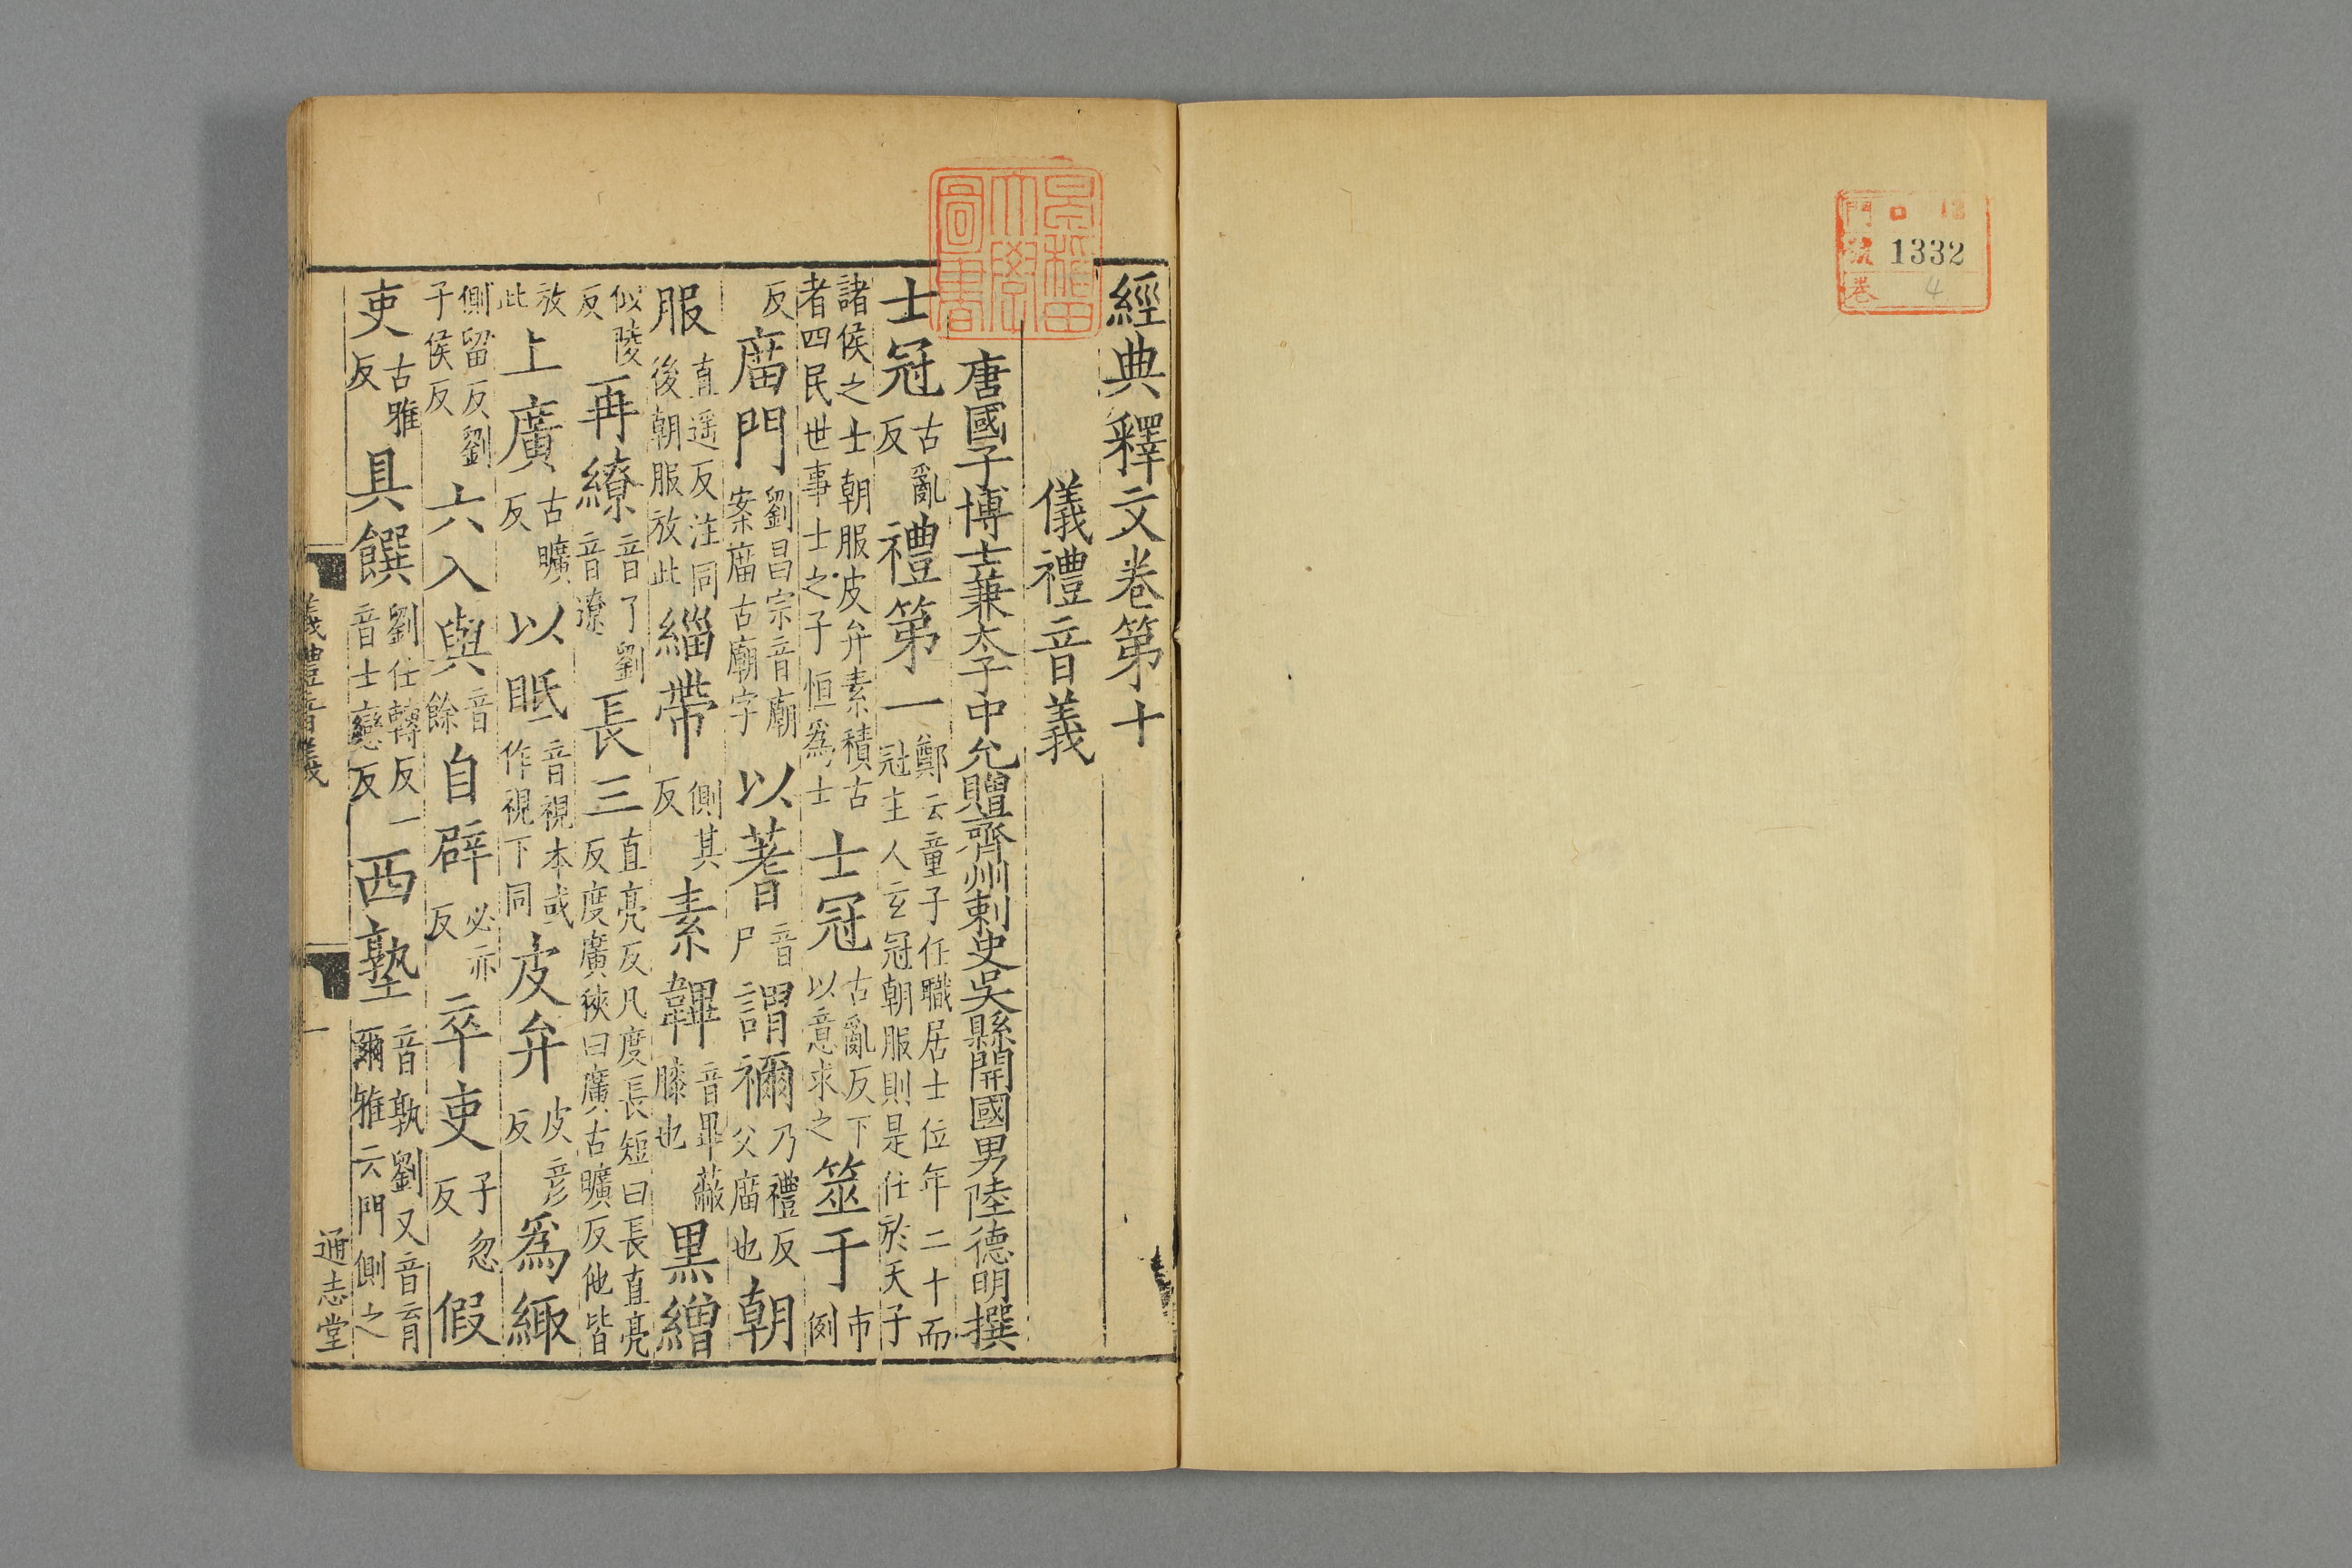 門 口 12
號 1332
卷 4
早稻田大學圖書
經典釋文卷第十
儀禮音義
唐國子博士兼太子中允贈齊州刺史吳縣開國男陸德明撰
士冠古亂反禮第一鄭云童子任職居士位年二十而冠主人玄冠朝服則是仕於天子
諸侯之士朝服皮弁素積古者四民世事士之子恒為士士冠古亂反下以意求之筮于市例
反庿門劉昌宗音廟案庿古廟字以蓍音尸謂禰乃禮反父庿也朝
服直遥反注同後朝服放此緇帶側其反素韠音畢蔽膝也黑繒
似陵反再繚音了劉音遼長三直亮反凡度長短曰長直亮反度廣狹曰廣古曠反他皆
放此上廣古曠反以眂音視本或作視下同皮弁皮彦反爲緅
側留反劉子侯反六入與音餘自辟必亦反卒吏子忽反假
吏古雅反具饌劉仕轉反一音士戀反西塾音孰劉又音育爾雅云門側之
義禮音義
一
通志堂